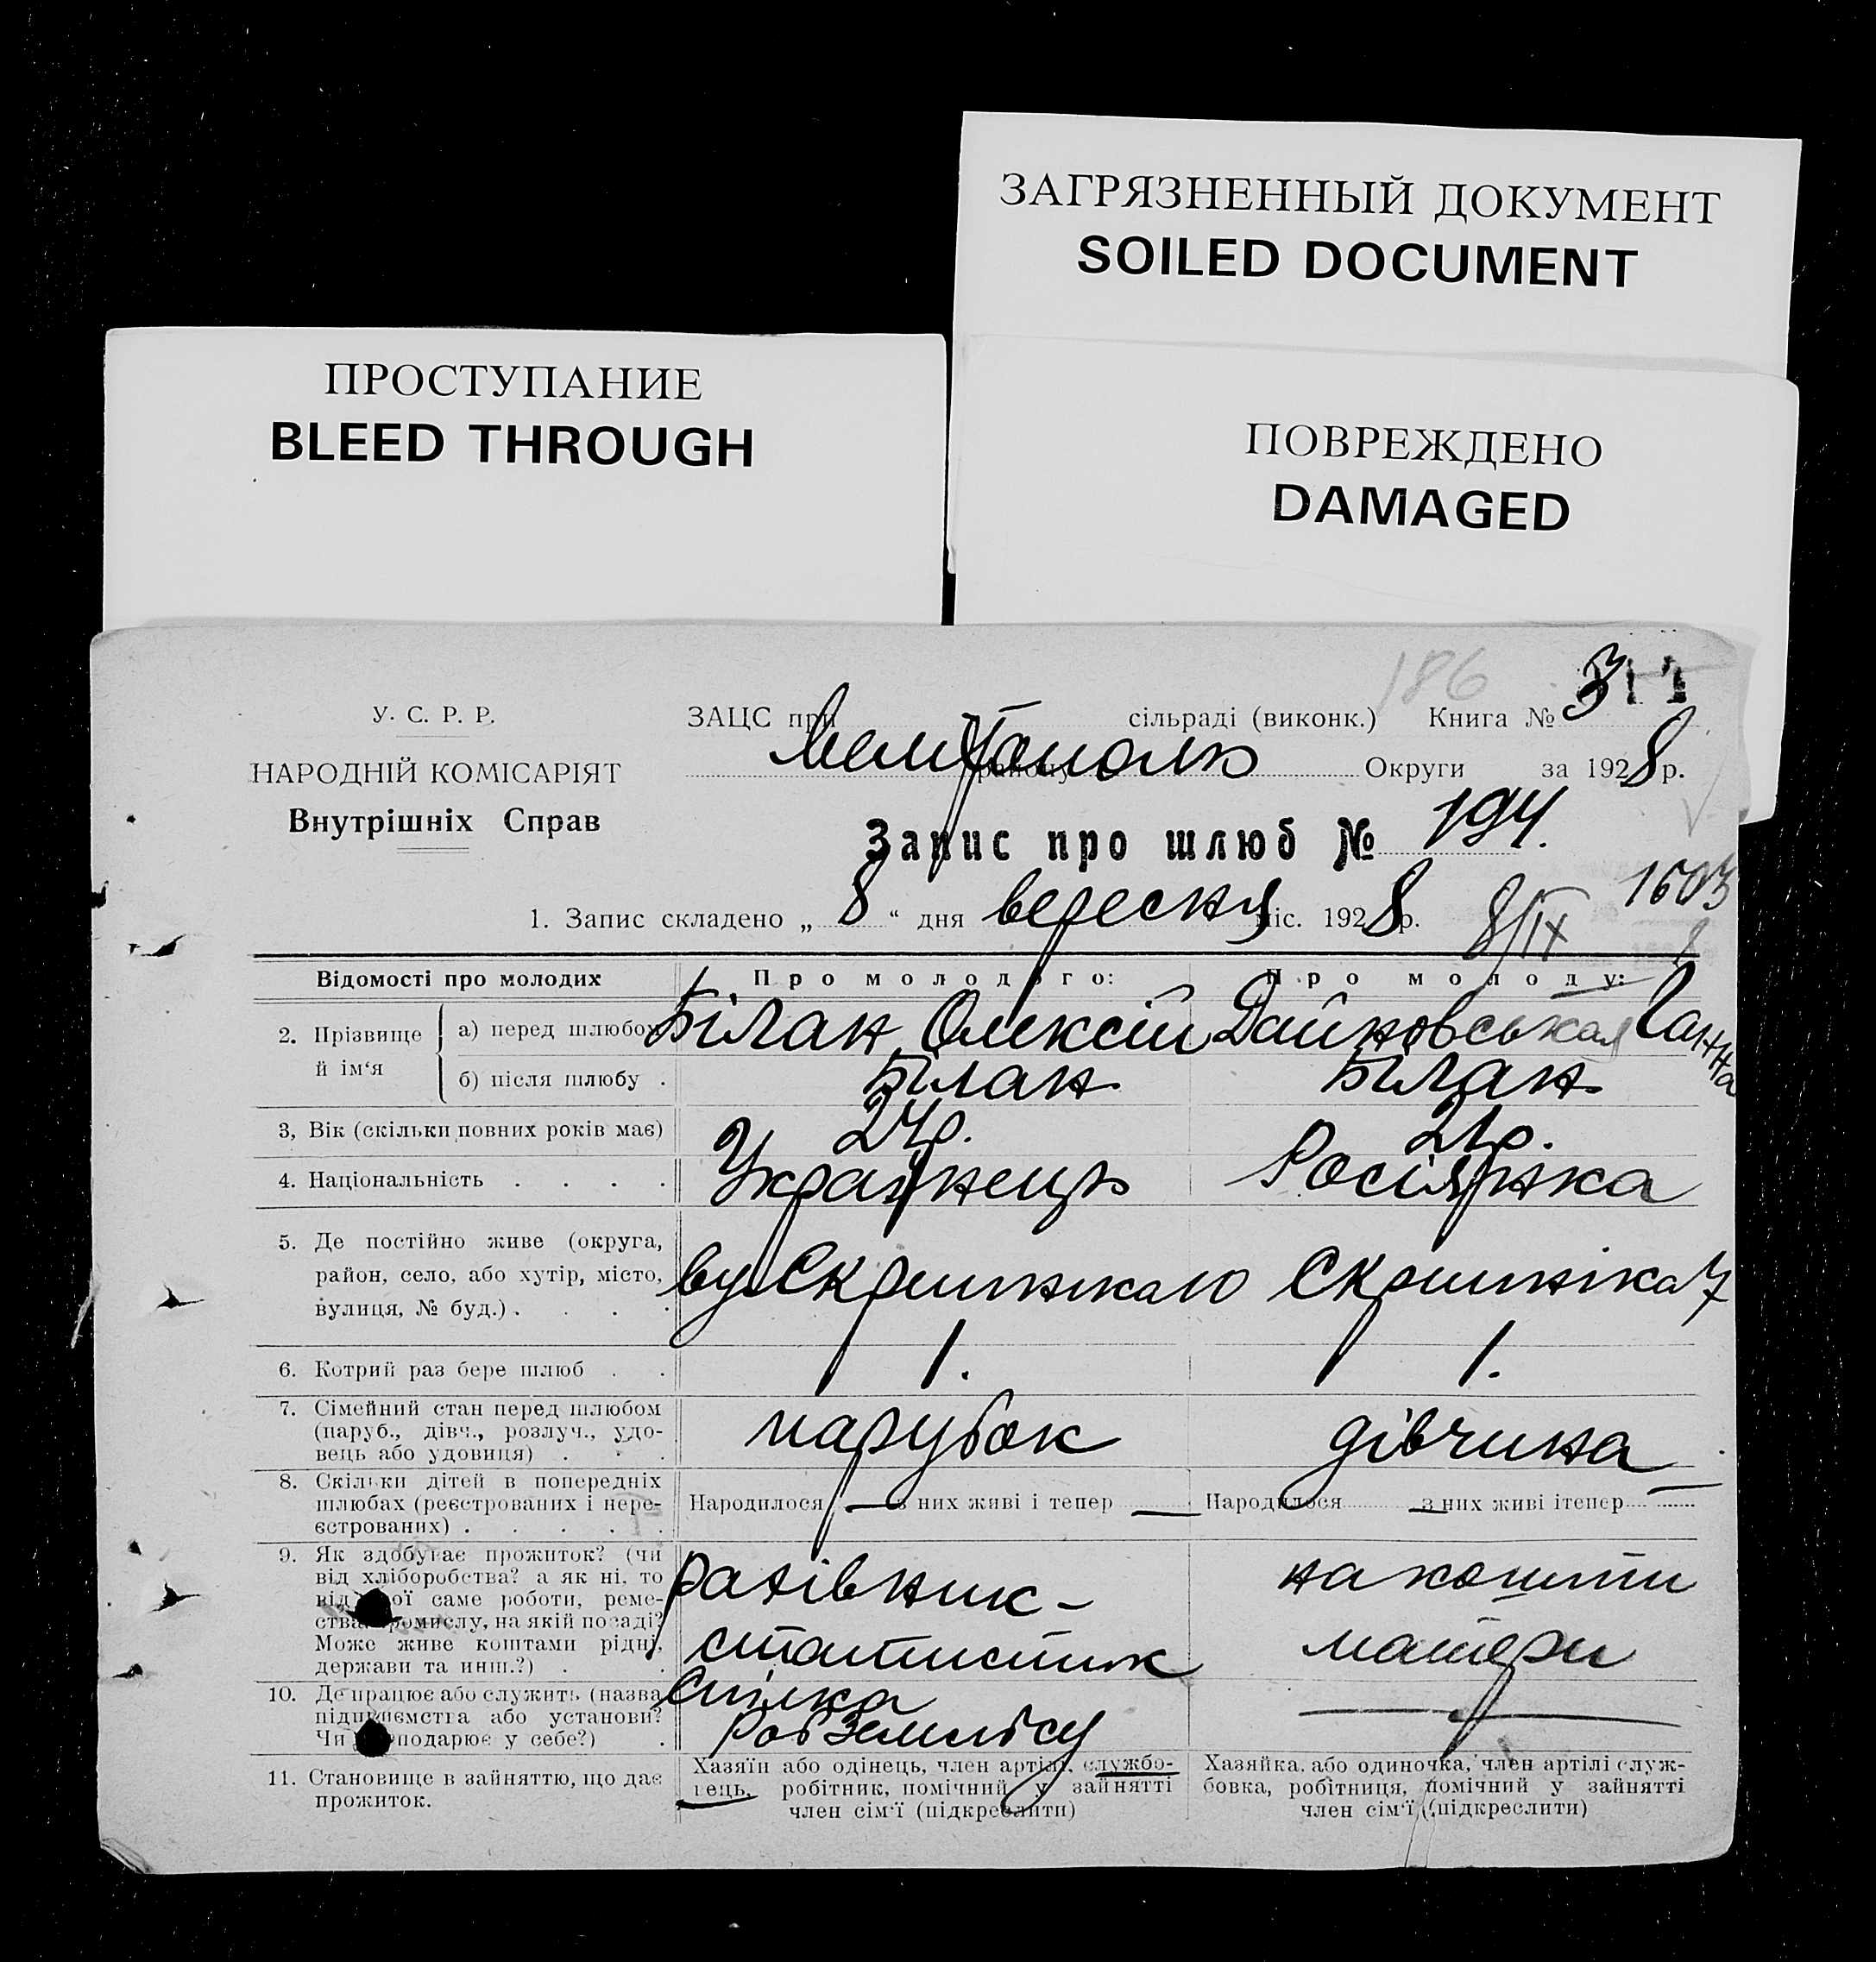 ЗАГРЯЗНЕННЫЙ ДОКУМЕНТ
SOILED DOCUMENT
ПРОСТУПАНИЕ
BLEED THROUGH
ПОВРЕЖДЕНО
DAMAGED
186
У. С. Р. Р.
НАРОДНІЙ КОМІСАРІЯТ
Внутрішніх Справ
ЗАЦС при сільраді (виконк.) Книга № 3
Мелітополь району Округи за 1928 р.
Запис про шлюб № 194.
1603
1. Запис складено „ 8 “ дня вересня міс. 1928 р. 8/IX
Відомості про молодих
Про молодого:
Про молоду:
2. Прізвище й ім‘я
а) перед шлюбом
Білан Олексій
Ганна
б) після шлюбу .
Білан
Білан
3, Вік (скільки повних років має)
24р.
21р.
4. Національність . . . .
Українець
Росіянка
5. Де постійно живе (округа,
район, село, або хутір, місто,
вулиця, № буд.) . . . .
вул Скрипника 10
Скрипніка 7
6. Котрий раз бере шлюб . .
1.
1.
7. Сімейний стан перед шлюбом
(паруб., дівч., розлуч., удо-
вець або удовиця) . . .
парубок
дівчина
8. Скільки дітей в попередніх
шлюбах (реєстрованих і нере-
єстрованих) . . . . .
Народилося — з них живі і тепер —
Народилося — з них живі ітепер —
9. Як здобуває прожиток? (чи
від хліборобства? а як ні, то
від якої саме роботи, реме-
ства промислу, на якій посаді?
Може живе коштами рідні,
держави та инш.?) . .
рахівник-
статистик
на кошти
матери
10. Де працює або служить (назва
підприємства або установи?
Чи господарює у себе?) .
Спілка
РобЗемлісу
—
11. Становище в зайняттю, що дає
прожиток.
Хазяїн або одінець, член артілі, службо-
вець, робітник, помічний у зайнятті
член сім‘ї (підкреслити)
Хазяйка, або одиночка, член артілі служ-
бовка, робітниця, помічний у зайнятті
член сім‘ї (підкреслити)